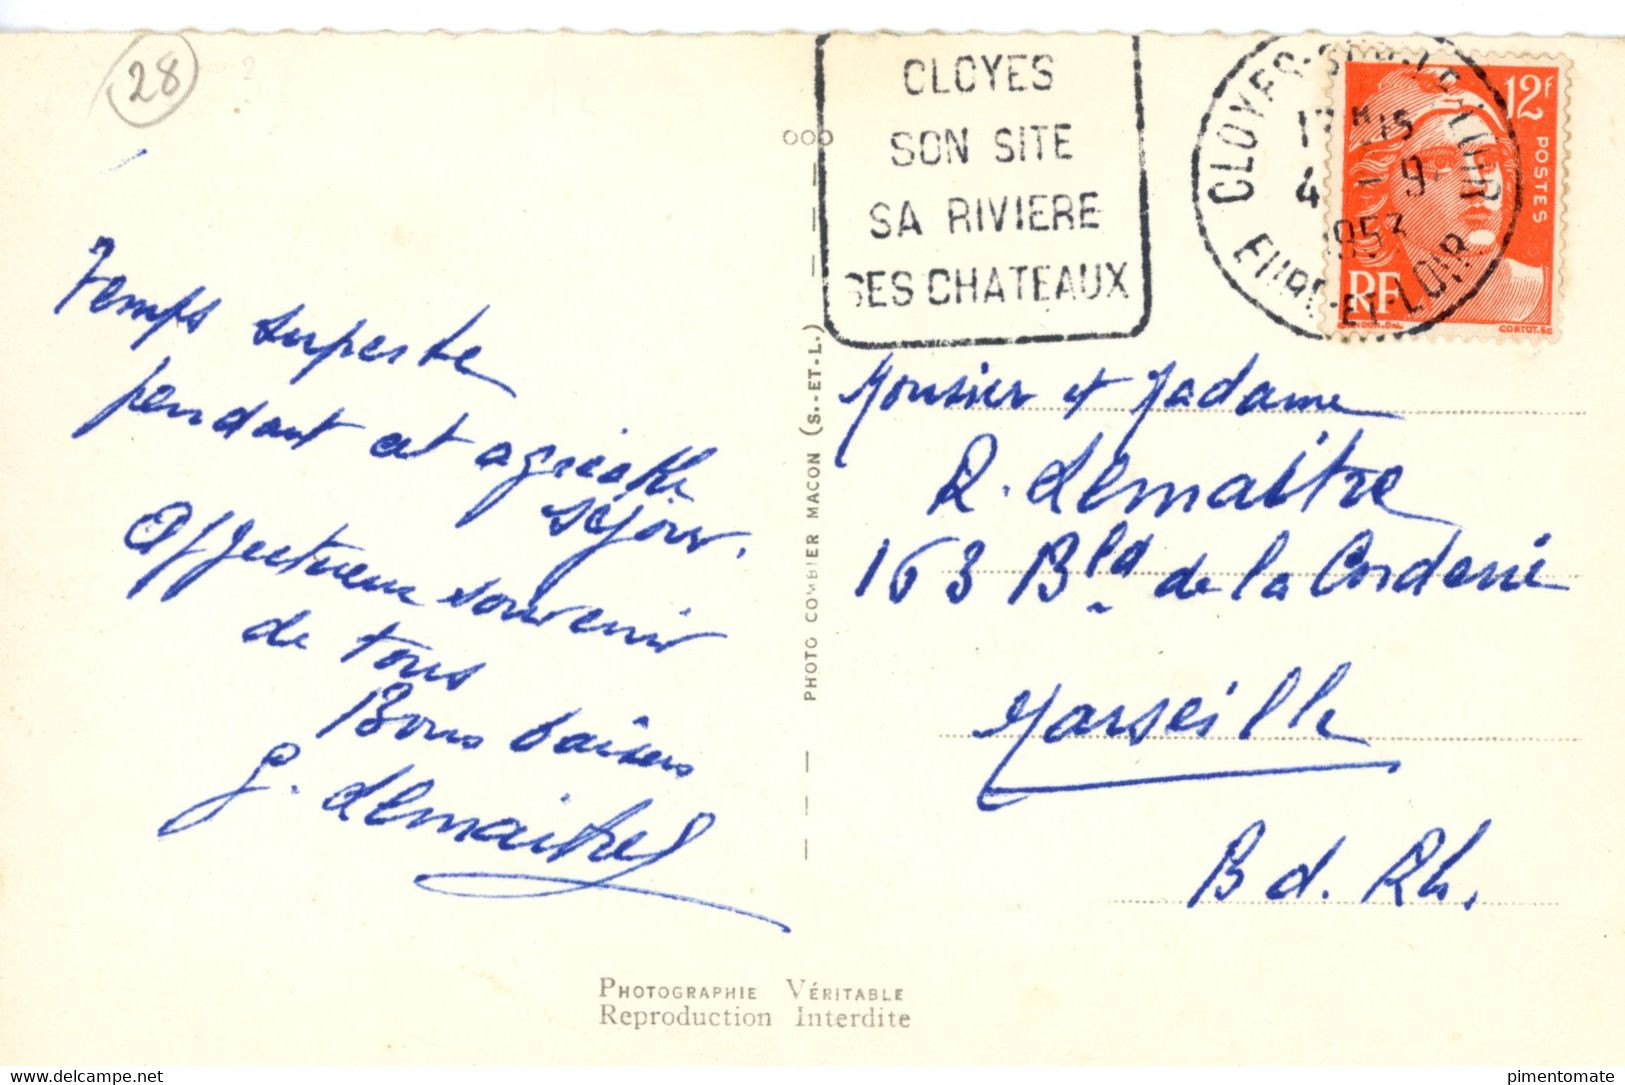 28
CLOYES
SON SITE
SA RIVIERE
SES CHATEAUX
CLOYES-SUR-LE-LOIR
17H15
4 - 9
1953
EURE-ET-LOIR
12F
POSTES
RF
GANDON.DEL.
CORTOT.SC
Temps superbe
pendant cet agréable
séjour.
Affectueux souvenir
de tous
Bons baisers
G. Lemaitre
PHOTO COMBIER MACON (S.-ET-L.)
Monsieur et Madame
R. Lemaitre
163 Bld de la Corderie
Marseille
B d. Rh.
PHOTOGRAPHIE VÉRITABLE
Reproduction Interdite
https://www.delcampe.net
pimentomate